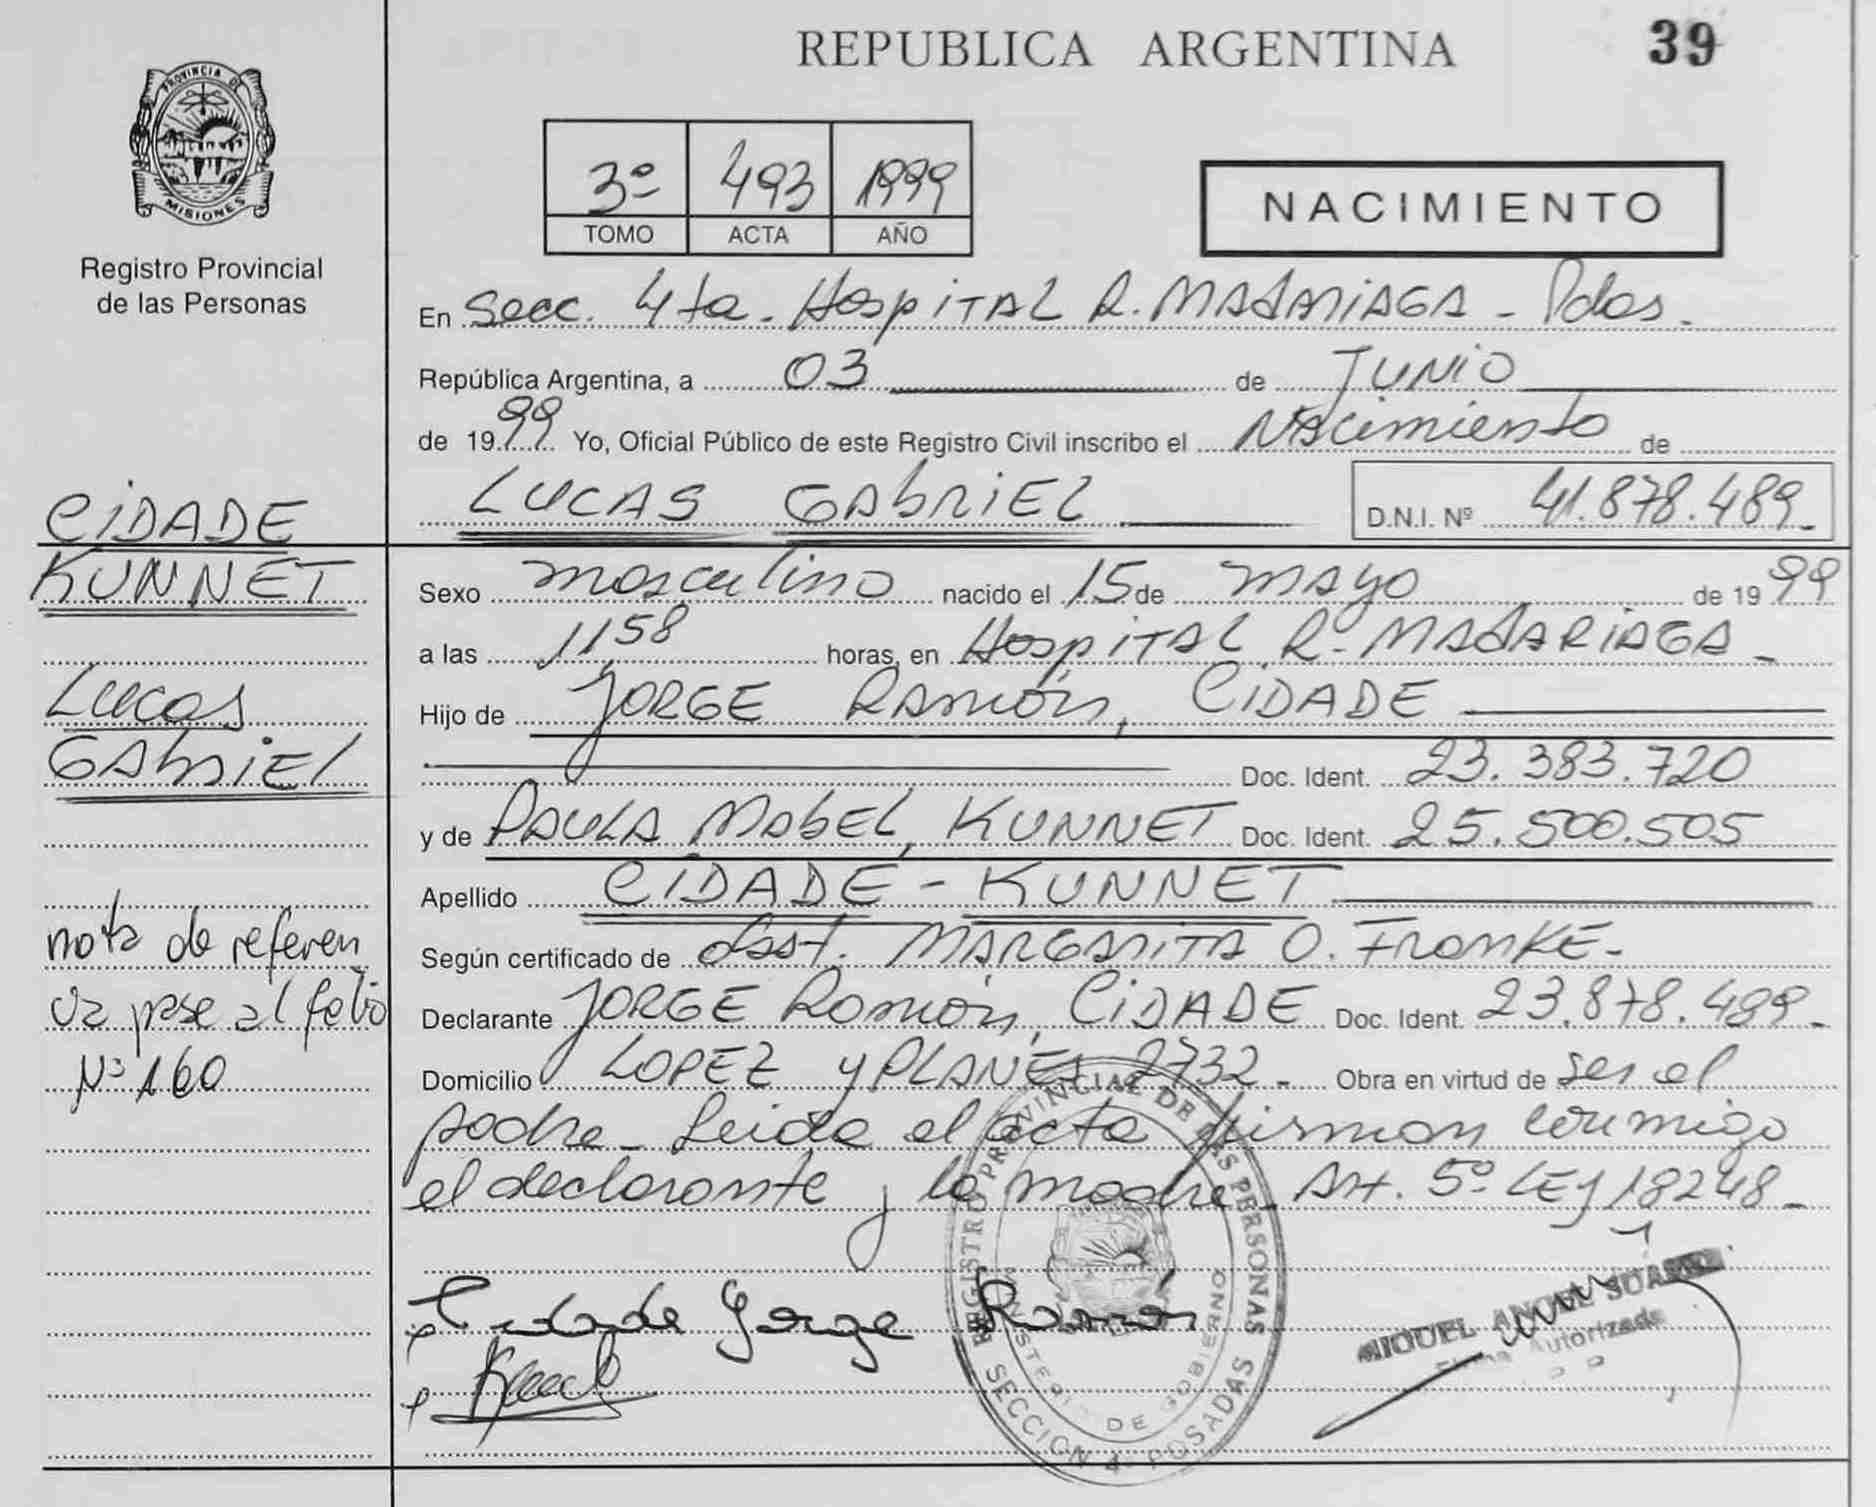 REPUBLICA ARGENTINA
39
PROVINCIA DE
MISIONES
Registro Provincial
de las Personas
3º 493 1999
TOMO ACTA AÑO
NACIMIENTO
En Secc. 4ta. Hospital R. MADARIAGA - Pdas.
República Argentina, a 03 de JUNIO
de 1999 Yo, Oficial Público de este Registro Civil inscribo el Nacimiento de
LUCAS GABRIEL D.N.I. Nº 41.878.489
CIDADE
KUNNET
Lucas
GABRIEL
nota de referen
va pase al folio
Nº 160
Sexo masculino nacido el 15 de mayo de 1999
a las 1158 horas, en Hospital R. MADARIAGA
Hijo de JORGE RAMÓN, CIDADE
Doc. Ident. 23.383.720
y de PAULA MABEL, KUNNET Doc. Ident. 25.500.505
Apellido CIDADE - KUNNET
Según certificado de Obst. MARGARITA O. FRANKE
Declarante JORGE RAMÓN, CIDADE Doc. Ident. 23.878.489
Domicilio LOPEZ y PLANES 2732 Obra en virtud de ser el
padre. Leida el acta firman conmigo
el declarante y la madre. Art. 5º LEY 18248
Cidade Jorge Ramón
REGISTRO PROVINCIAL DE LAS PERSONAS
MINISTERIO DE GOBIERNO
SECCION 4 POSADAS
MIGUEL ANGEL
Firma Autorizada